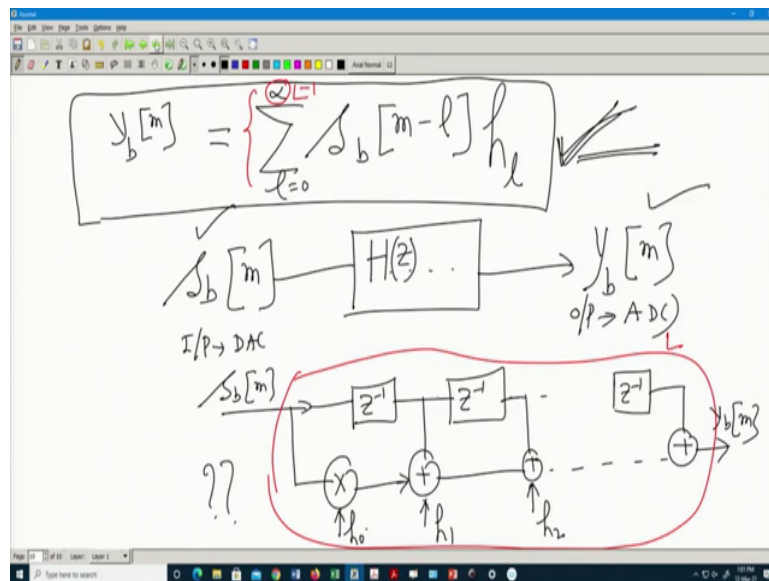 Journal
File Edit View Page Tools Options Help
Arial Normal 12
y_b[m] = { ∑_{l=0}^{∞ L-1} s_b[m-l] h_l
s_b[m] H(z)... y_b[m]
I/P → DAC O/P → ADC)
L
s_b[m] z⁻¹ z⁻¹ - z⁻¹
y_b[m]
?? × + + - - - - +
h₀ h₁ h₂
Page 19 of 19 Layer: Layer 1
Type here to search